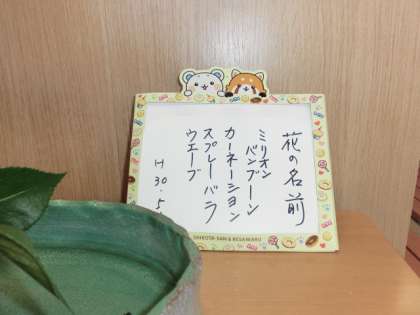 花の名前
ミリオン
バンブーン
カーネーション
スプレーバラ
ウエーブ
H30.5